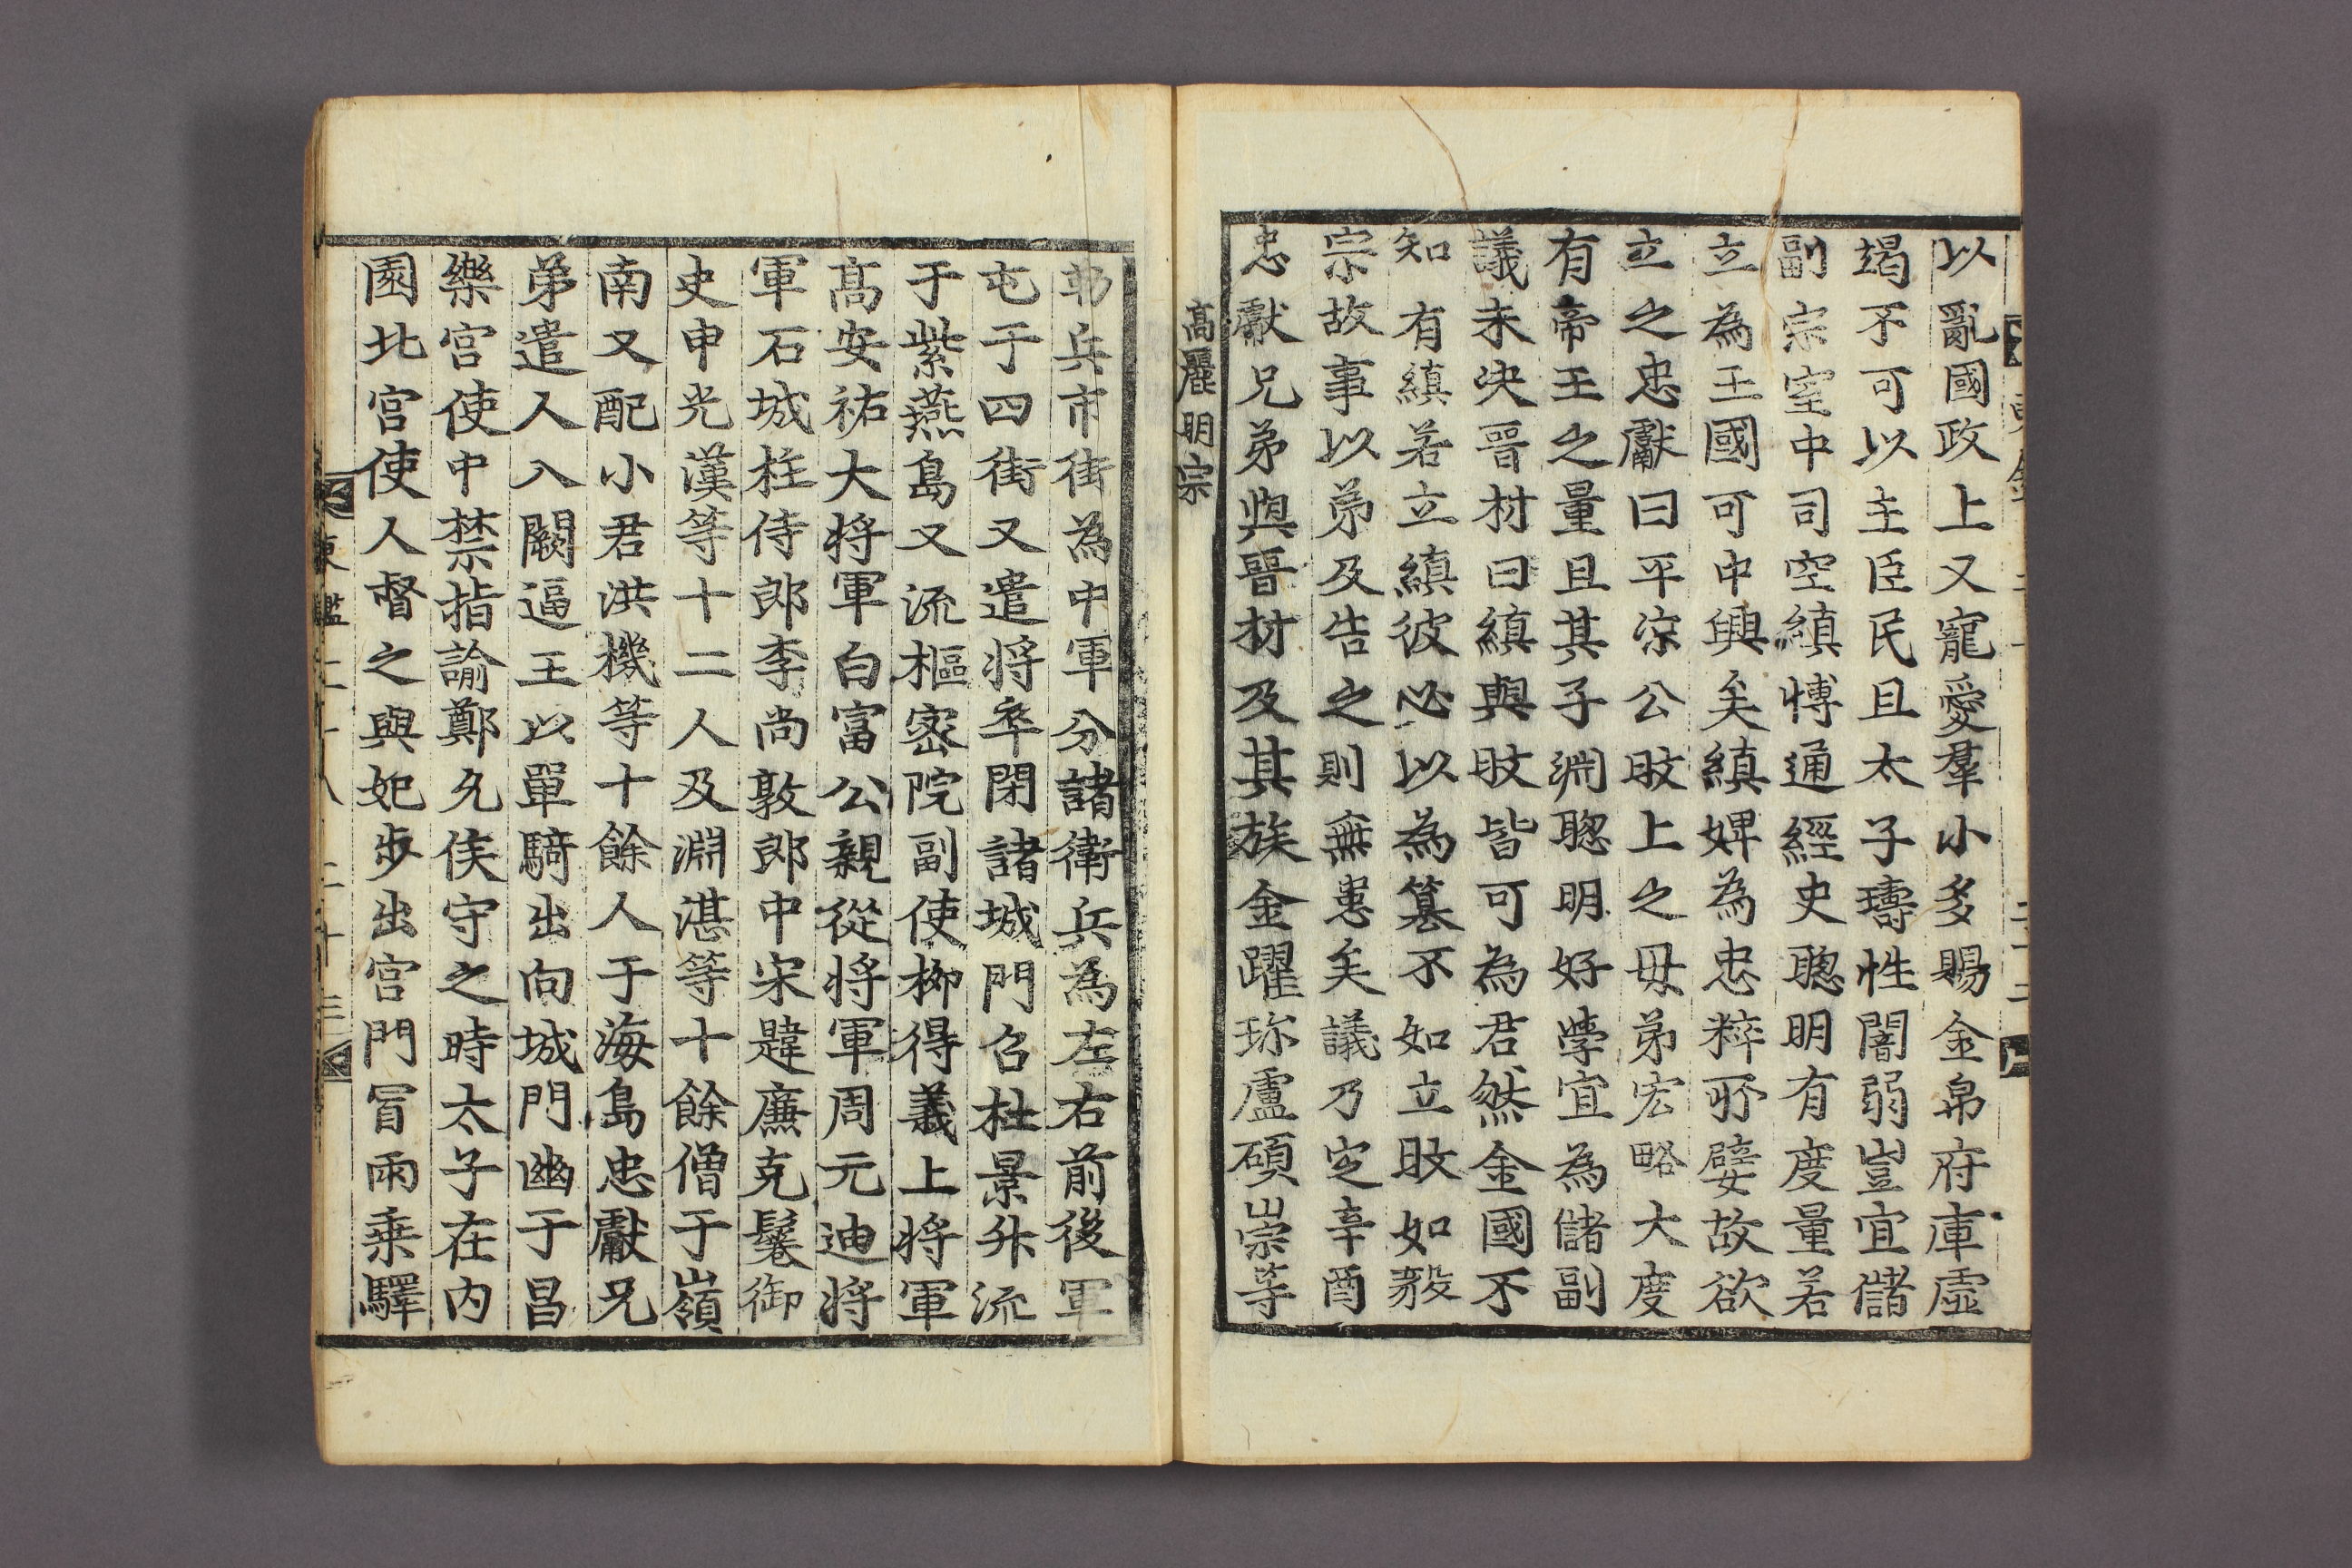 以亂國政上又寵愛羣小多賜金帛府庫虛
竭不可以主臣民且太子璹性闇弱豈宜儲
副宗室中司空縝博通經史聰明有度量若
立為王國可中興矣縝婢為忠粹所嬖故欲
立之忠獻曰平涼公旼上之母弟宏略大度
有帝王之量且其子淵聰明好學宜為儲副
議未決晋材曰縝與旼皆可為君然金國不
知有縝若立縝彼必以為簒不如立旼如毅
宗故事以弟及告之則無患矣議乃定辛酉
忠獻兄弟與晋材及其族金躍珎盧碩崇等
高麗明宗
勒兵市街為中軍分諸衛兵為左右前後軍
屯于四街又遣将卒閉諸城門召杜景升流
于紫燕島又流樞密院副使柳得義上将軍
高安祐大将軍白富公親從将軍周元迪将
軍石城柱侍郎李尚敦郎中宋韙廉克鬈御
史申光漢等十二人及淵湛等十餘僧于嶺
南又配小君洪機等十餘人于海島忠獻兄
弟遣人入闕逼王以單騎出向城門幽于昌
樂宮使中禁指諭鄭允侯守之時太子在內
園北宮使人督之與妃步出宮門冒雨乗驛
東鑑二十八 二十三